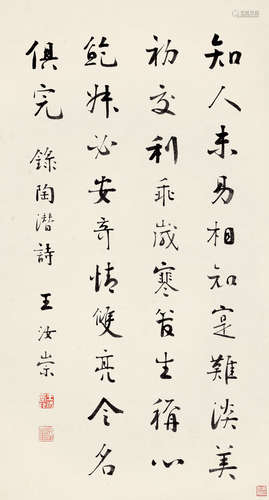 知人未易相知寔難淡美
初交利乖歲寒管生稱心
鮑叔必安奇情雙亮令名
俱完
錄陶潛詩 王汝崇